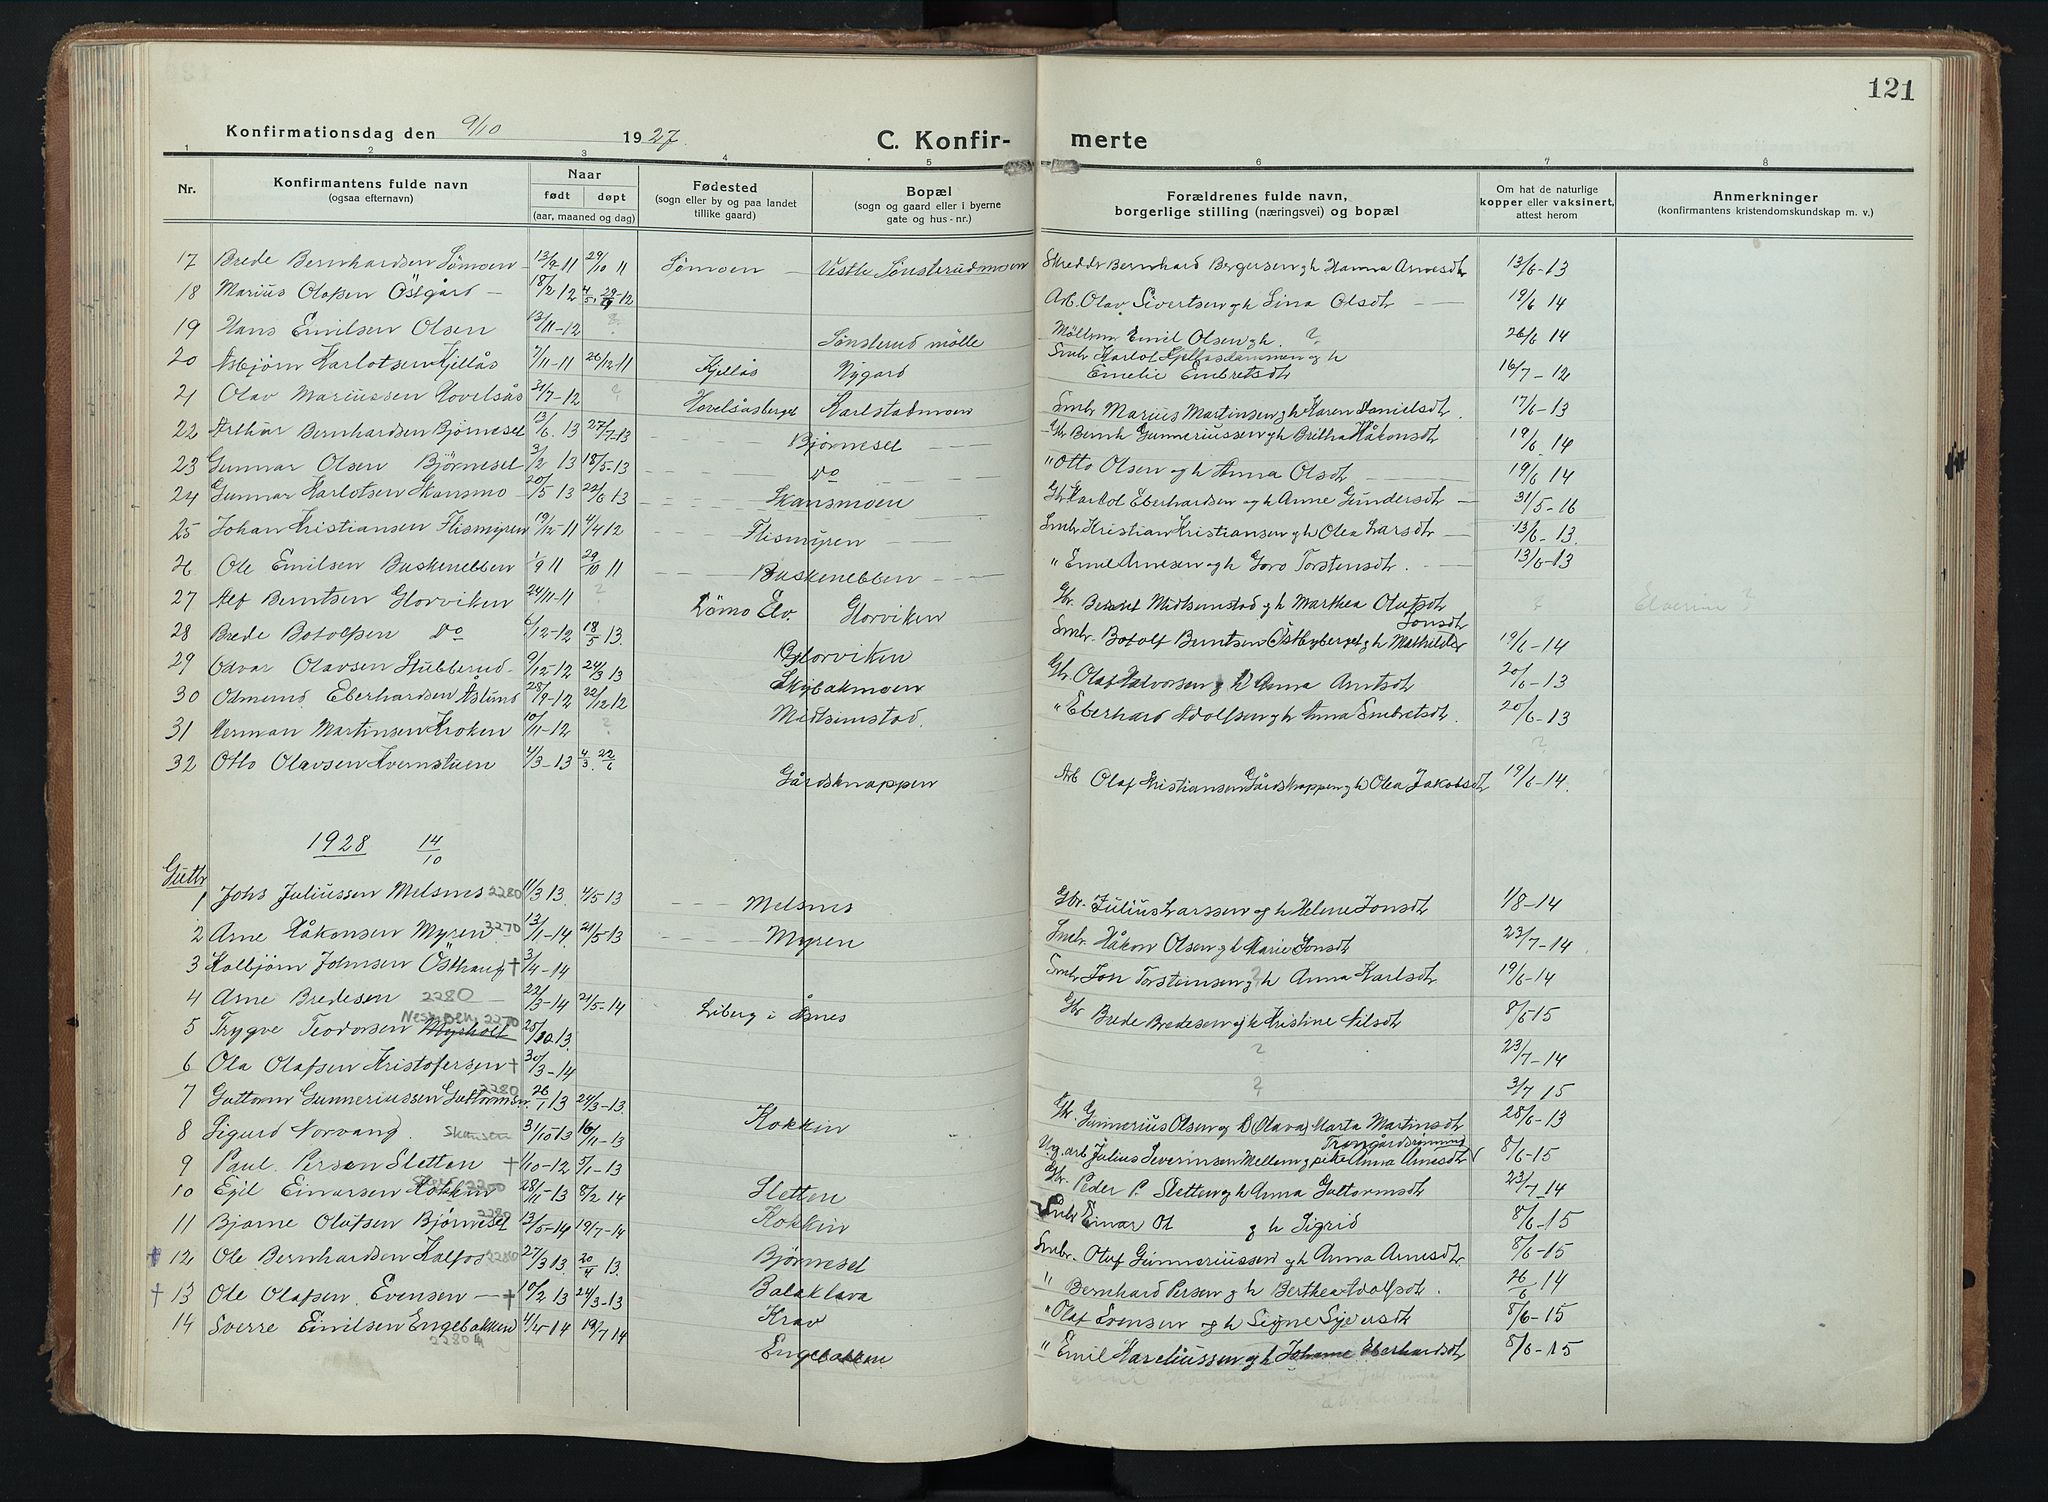 121
Konfirmationsdag den 9/10 1927. C. Konfir- merte
1 2 3 4 5 6 7 8
Nr.
Konfirmantens fulde navn
(ogsaa efternavn)
Naar
født døpt
(aar, maaned og dag)
Fødested
(sogn eller by og paa landet
tillike gaard)
Bopæl
(sogn og gaard eller i byerne
gate og hus-nr.)
Forældrenes fulde navn,
borgerlige stilling (næringsvei) og bopæl
Om hat de naturlige
kopper eller vaksinert,
attest herom
Anmerkninger
(konfirmantens kristendomskundskap m. v.)
17 Brede Bernhardsen Lömoen 13/9 11 29/10 11 Lömoen - Vestle Sønsterudmoen Skredder Bernhard Bergersen gh Hanna Arnesdtr 13/6-13
18 Marius Olafsen Östgård - 18/2 12 Arb. Olav Sivertsen gh Lina Olsdtr 19/6 14
19 Hans Emilsen Olsen 13/11-12 ? Sønsterud mölle Möller Emil Olsen gh. ? 26/6 14
20 Asbjörn Karlotsen Kjellås 7/11-11 26/12 11 Kjellås Nygård Smbr Karlot gh
Emelie Embretsdtr 16/7-12
21 Olav Mariussen Hovelsås 31/7-12 ? Hovelsåsberget Karlstadmoen Smbr Marius Martinsen gh Karen Danielsdtr. 17/6-13
22 Arthur Bernhardsen Björnesel 13/6. 13 27/7-13 Björnesel Gbr Bernh Gunneriussen gh Håkonsdtr 19/6 14
23 Gunnar Olsen Björnesel 3/2 13 18/5-13 Do " Otto Olsen og h Anna Olsdtr 19/6 14
24 Gunnar Karlotsen Skansmo 20/5 13 22/6 13 Skansmoen Gbr Karlot Eberhardsen og h Anne Gundersdtr - 31/5-16
25 Johan Kristiansen Flismyren 19/12-11 4/4 12 Flismyren Smbr Kristian Kristiansen gh Olea Larsdtr - 13/6-13.
26 Ole Emilsen Buskenebben 1/9 11 29/10 11 Buskenebben " Emil Arnesen og h Goro Torstensdtr. 13/6-13
27 Alf Berntsen Glorviken 24/11-11 ? Lömo Elv. Glorviken Gbr. Midtsimstad gh Marthea Olufsdtr ? Elverum ?
28 Brede Botolfsen Do 6/12-12 18/5 13. Glorviken Smbr. Botolf Berntsen Östbyberget gh Mathilde Jonsdtr 19/6-14
29 Odvar Olavsen Stubberud 9/12-12 24/3 13 Skybakmoen Gbr. Olaf Halvorsen g h Anna Arntsdtr 20/6-13
30 Odmund Eberhardsen Åslund 28/9-12 22/12 12 Midtsimstad. " Eberhard Adolfsen gh Anna Embretsdtr. 20/6-13
31 Herman Martinsen Kroken 10/11-12 ? ?
32 Otto Olavsen Kvernstuen 4/3-13 4/3. 22/6 Gårdsknappen Arb Olaf Kristiansen Gårdsknappen gh Olea Jakobsdtr 19/6-14.
1928 14/10
Gutter
1 Johs Juliussen Melsnes 2280 11/3 13. 4/5 13 Melsnes Gbr. Julius Larssen og h Helene Jonsdtr 1/8-14
2 Arne Håkonsen Myren 2270 13/1-14. 21/5-13 Myren Smbr. Håkon Olsen gh Marie Jonsdtr 23/7-14
3 Kolbjörn Johnsen Östhaug + 3/4-14 Smbr Jon Torsteinsen g h Anna Karlsdtr 19/6-14
4 Arne Bredesen 2280 22/3-14 21/5-14 Liberg i Åsnes Gbr Brede Bredesen gh Kristine Nilsdtr 8/6 15
5 Trygve Teodorsen 2270 25/10-13. ? 23/7-14
6 Ola Olafsen Kristofersen + 30/3-14 ? 3/7 15
7 Guttorm Gunneriussen Guttormsen 2280 26/1 13 24/3-13. Kokkin Gbr. Gunnerius Olsen g h (Olava) Marta Martinsdtr 28/6-13
8 Sigurd Norvang. Skansen 31/10-13 16/11-13 Ug. arb Julius Severinsen Mellem g pike Anna Arnesdtr 8/6-15
9 Paul Persen Sletten + 1/10-12 5/1-13 Sletten Gbr. Peder P. Sletten g h Anna Guttormsdtr 23/7-14
10 Egil Einarsen Kokkin 28/11-13 8/2 14 Kokkin Smbr Einar Ol g h Sigrid 8/6-15
11 Bjarne Olufsen Björnesel 2280 13/5-14 19/7-14 Björnesel Smbr. Oluf Gunneriussen gh Anna Arnesdtr 8/6-15
+ 12 Ole Bernhardsen Kalfos 2280 27/3 13. 20/4 13. Balaklava " Bernhard Persen g h Berthea Adolfsdtr. 26/6 14
+ 13 Ole Olafsen Evensen - + 10/2 13 24/3-13 Krav " Olaf Evensen og h Signe Syversdtr 8/6-15
14 Sverre Emilsen Engebakken 2280 4/4 14 19/7 14 Engebakken " Emil Kareliussen gh Johanne Eberhardsdtr 8/6-15